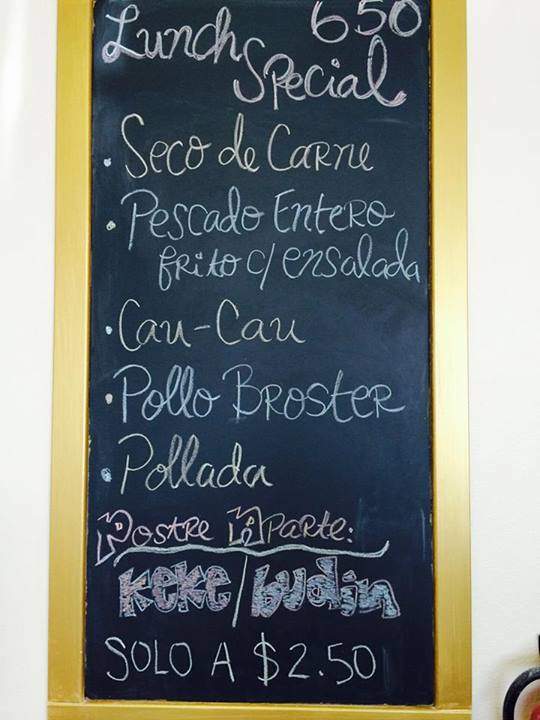 Lunch 650
Special
• Seco de Carne
• Pescado Entero
frito c/ ensalada
• Cau-Cau
• Pollo Broster
• Pollada
Postre Aparte:
keke/budin
SOLO A $2.50